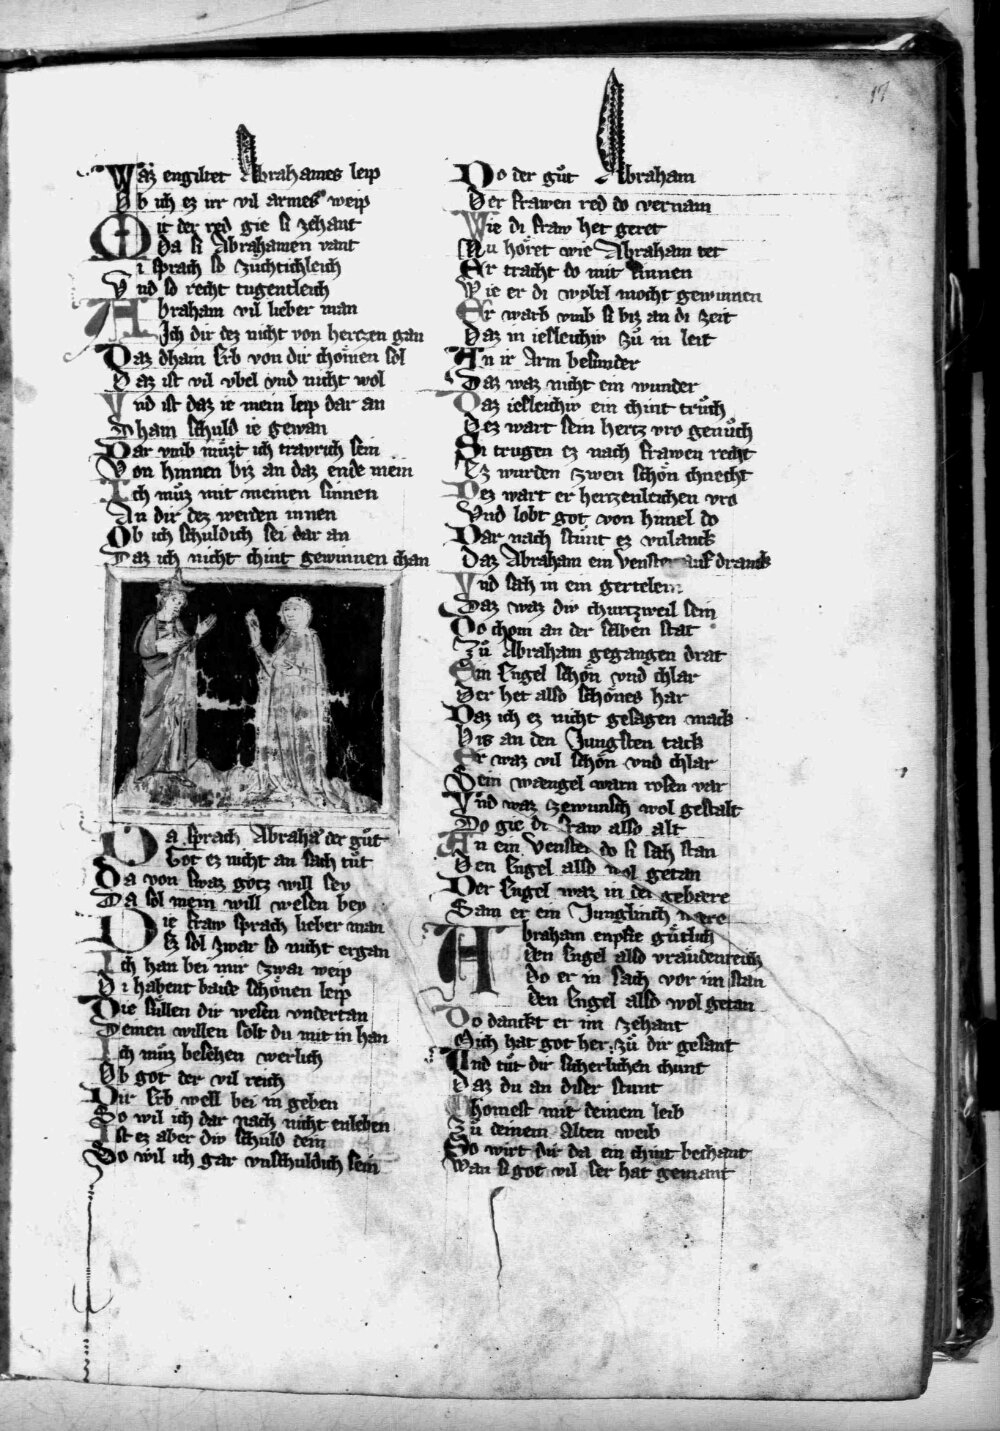 17
Waz engiltet Abrahames leip
Ob ich ez irr vil armes weip
Mit der red gie si zehant
Da si Abrahamen vant
Si sprach so züchtichleich
Vnd so recht tugentleich
Abraham vil lieber man
Ich dir dez nicht von hertzen gan
Daz dham Erb von dir chömen sol
Daz ist vil vbel vnd nicht wol
Vnd ist daz ie mein leip dar an
Dham schuld ie gewan
Dar vmb müzt ich travrich sein
Von hinnen biz an daz ende mein
Ich müz mit meinen sinnen
An dir dez werden innen
Ob ich schuldich sei dar an
Daz ich nicht chint gewinnen chan
Da sprach Abrahā der gůt
Got ez nicht an sach tůt
Da von swaz gotz will sey
Da sol mein will wesen bey
Die fraw sprach lieber man
Ez sol zwar so nicht ergan
Ich han bei mir zwai weip
Di habent baide schönen leip
Die süllen dir wesen vndertan
Deinen willen solt du mit in han
Ich müz besehen werlich
Ob got der vil reich
Dir Erb well bei in geben
So wil ich dar nach nicht enleben
Ist ez aber div schuld dein
So wil ich gar vnschuldich sein
Do der gůt Abraham
Der frawen red do vernam
Wie di fraw het geret
Nu höret wie Abraham tet
Er tracht do mit sinnen
Wie er di wolt mocht gewinnen
Er warb vmb si biz an di zeit
Daz in iesleichiv zů in leit
An ir Arm besunder
Daz waz nicht ein wunder
Daz iesleichiv ein chint trůch
Dez wart sein hertz vro genůch
Si trugen ez nach frawen recht
Ez wurden zwen schön chnecht
Dez wart er hertzenleichen vro
Vnd lobt got von himel do
Dar nach stůnt ez vnlanck
Daz Abraham ein venster auf dranck
Vnd sah in ein gertelein
Daz waz div churtzweil sein
Do chom an der selben stat
Zů Abraham gegangen drat
Ein Engel schön vnd chlar
Der het also schönes har
Daz ich ez nicht gesagen mack
Bis an den Jungsten tack
Er waz vil schön vnd chlar
Sein wængel warn rosen var
Vnd waz zewunsch wol gestalt
Do gie di fraw also alt
An ein venster do si sah stan
Den Engel also wol getan
Der Engel waz in der gebære
Sam er ein Junglinch were
Abraham enpfie gütlich
den Engel also vräudenreich
Do er in sach vor im stan
den Engel also wol getan
Do danckt er im zehant
Mich hat got her zů dir gesant
Vnd tůt dir sicherlichen chunt
Daz du an diser stunt
Chomest mit deinem leib
Zů deinem Alten weib
So wirt dir da ein chint bechant
Wan si got vil ser hat gemant